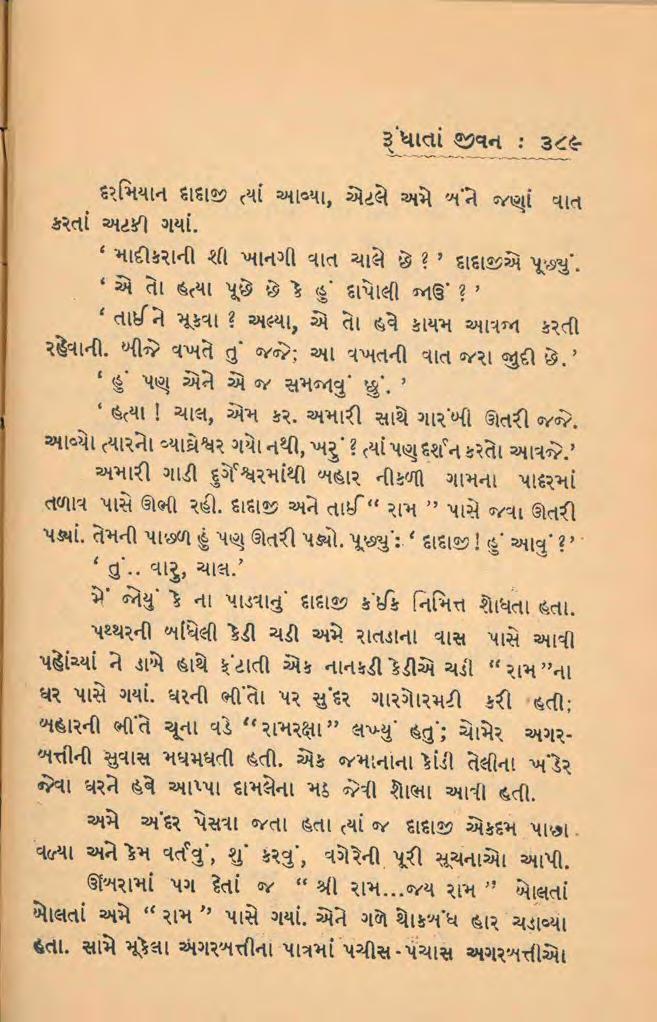 રૂંધાતાં જીવન : ૩૮૯
દરમિયાન દાદાજી ત્યાં આવ્યા, એટલે અમે બંને જણાં વાત
કરતાં અટકી ગયાં.
‘ માદીકરાની શી ખાનગી વાત ચાલે છે ? ’ દાદાજીએ પૂછ્યું.
‘ એ તો હત્યા પૂછે છે કે હું દાપોલી જાઉં ? ’
‘ તાઈને મૂકવા ? અલ્યા, એ તો હવે કાયમ આવજા કરતી
રહેવાની. બીજે વખતે તું જજે; આ વખતની વાત જરા જુદી છે. ’
‘ હું પણ એને એ જ સમજાવું છું. ’
‘ હત્યા ! ચાલ, એમ કર. અમારી સાથે ગારંબી ઊતરી જજે.
આવ્યો ત્યારનો વ્યાઘ્રેશ્વર ગયો નથી, ખરું ? ત્યાં પણ દર્શન કરતો આવજે.’
અમારી ગાડી દુર્ગેશ્વરમાંથી બહાર નીકળી ગામના પાદરમાં
તળાવ પાસે ઊભી રહી. દાદાજી અને તાઈ “ રામ ” પાસે જવા ઊતરી
પડ્યાં. તેમની પાછળ હું પણ ઊતરી પડ્યો. પૂછ્યું : ‘ દાદાજી ! હું આવું ?’
‘ તું.. વારુ, ચાલ.’
મેં જોયું કે ના પાડવાનું દાદાજી કંઈક નિમિત્ત શોધતા હતા.
પથ્થરની બાંધેલી કેડી ચડી અમે રાતડાના વાસ પાસે આવી
પહોંચ્યાં ને ડાબે હાથે ફંટાતી એક નાનકડી કેડીએ ચડી “ રામ ”ના
ઘર પાસે ગયાં. ઘરની ભીંતો પર સુંદર ગારગોરમટી કરી હતી;
બહારની ભીંતે ચૂના વડે “ રામરક્ષા ” લખ્યું હતું; ચોમેર અગર-
બત્તીની સુવાસ મઘમઘતી હતી. એક જમાનાના કોંડી તેલીના ખંડેર
જેવા ઘરને હવે આપ્પા દામલેના મઠ જેવી શોભા આવી હતી.
અમે અંદર પેસવા જતા હતા ત્યાં જ દાદાજી એકદમ પાછા
વળ્યા અને કેમ વર્તવું, શું કરવું, વગેરેની પૂરી સૂચનાઓ આપી.
ઊંબરામાં પગ દેતાં જ “ શ્રી રામ...જય રામ ” બોલતાં
બોલતાં અમે “ રામ ” પાસે ગયાં. એને ગળે થોકબંધ હાર ચડાવ્યા
હતા. સામે મૂકેલા અગરબત્તીના પાત્રમાં પચીસ - પચાસ અગરબત્તીઓ